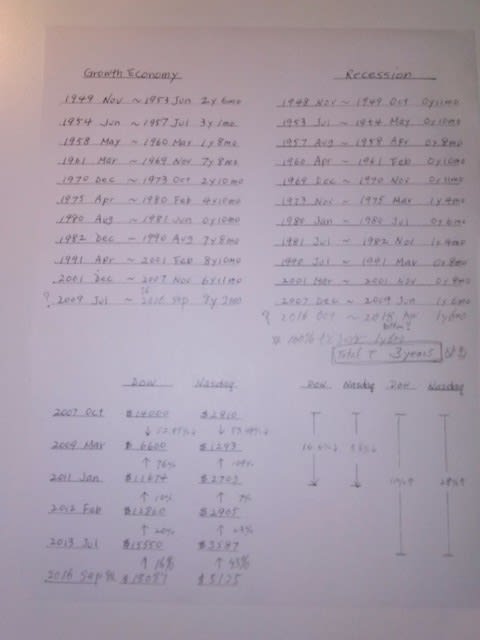 Growth Economy
1949 Nov ~ 1953 Jun 2y 6mo
1954 Jun ~ 1957 Jul 3y 1mo
1958 May ~ 1960 Mar 1y 8mo
1961 Mar ~ 1969 Nov 7y 8mo
1970 Dec ~ 1973 Oct 2y 10mo
1975 Apr ~ 1980 Feb 4y 10mo
1980 Aug ~ 1981 Jun 0y 10mo
1982 Dec ~ 1990 Aug 7y 8mo
1991 Apr ~ 2001 Feb 8y 10mo
2001 Dec ~ 2007 Nov 6y 11mo
? 2009 Jul ~ 2016 Sep
Recession
1948 Nov ~ 1949 Oct 0y 11mo
1953 Jul ~ 1954 May 0y 10mo
1957 Aug ~ 1958 Apr 0y 8mo
1960 Apr ~ 1961 Feb 0y 10mo
1969 Dec ~ 1970 Nov 0y 11mo
1973 Nov ~ 1975 Mar 1y 4mo
1980 Jan ~ 1980 Jul 0y 6mo
1981 Jul ~ 1982 Nov 1y 4mo
1990 Jul ~ 1991 Mar 0y 8mo
2001 Mar ~ 2001 Nov 0y 8mo
2007 Dec ~ 2009 Jun 1y 6mo
? 2016 Oct ~ 2018 Apr 1y 6mo
Total 3 years
Dow Nasdaq
2007 Oct $14000 $2810
2009 Mar $6600 $1293
↑ 76%
2011 Jan $11674 $2703
↑ 10% ↑ 7%
2012 Feb $12860 $2905
↑ 20%
2013 Jul $15550 $3587
↑ 16% ↑ 43%
2016 Sep $18087 $5125
Dow Nasdaq Dow Nasdaq